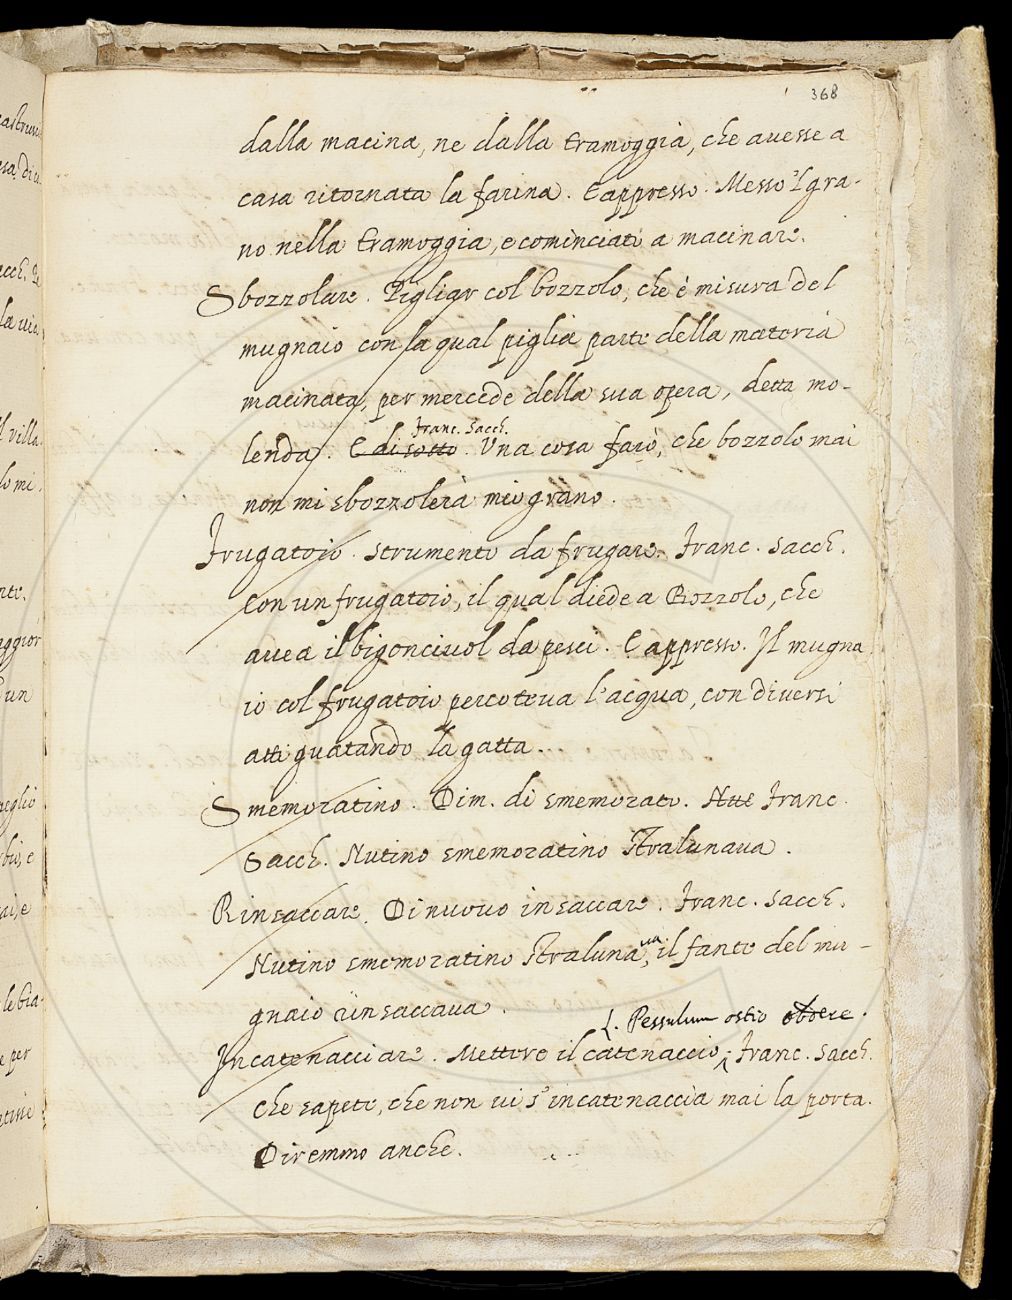 368
dalla macina, ne dalla tramoggia, che auesse a
casa ritornata la farina. E appresso. Messo 'l gra-
no nella tramoggia, e cominciato a macinare.
Sbozzolare. Pigliar col bozzolo, che è misura del
mugnaio con la qual piglia parte della materia
macinata, per mercede della sua opera, detta mo-
Franc. Sacch.
lenda. E di sotto. Una cosa farò, che bozzolo mai
non mi sbozzolerà mio grano.
Frugatoio. Strumento da frugare. Franc. Sacch.
Con un frugatoio, il qual diede a Bozzolo, che
auea il bigonciuol da pesci. E appresso. Il mugna
io col frugatoio percoteua l'acqua, con diversi
atti guatando la gatta.
Smemoratino. Dim. di smemorato. Franc.
Sacch. Nutino smemoratino stralunaua.
Rinsaccare. Di nuouo insaccare. Franc. Sacch.
Nutino smemoratino stralunaua, il fante del mu-
gnaio rinsaccaua.
L. Pessulum ostio obdere.
Incatenacciare. Mettere il catenaccio, Franc. Sacch.
che sapete, che non ui s'incatenaccia mai la porta.
Diremmo anche.